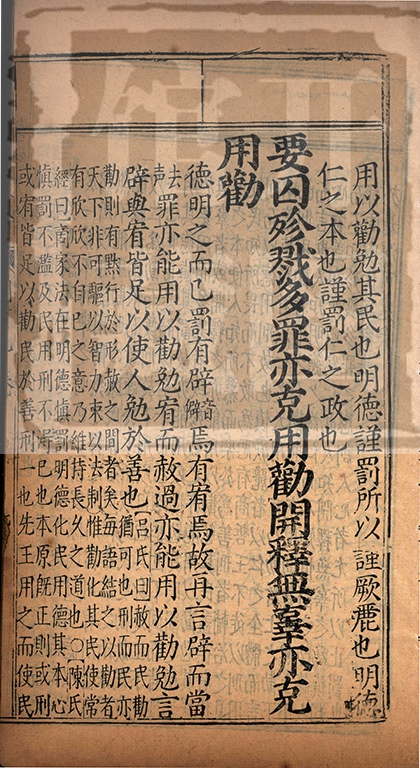 用以勸勉其民也明德謹罰所以謹厥麗也明德
仁之本也謹罰仁之政也
要囚殄戮多罪亦克用勸開釋無辜亦克
用勸
德明之而已罰有辟音焉有宥焉故再言辟而當
去聲罪亦能用以勸勉宥而赦過亦能用以勸勉言
辟與宥皆足以使人勉於善也呂氏曰赦而民勸
猶可也刑而民亦
勸則有默行於形赦之間者矣每語結之以勸者
天下非可驅以智力束以法制惟勸化其民使常
有欣欣不自已之意乃維持長久之道也○陳氏
經曰商家法在明德慎罰明德化民用德其本心
慎罰不濫及民用刑不得已也本原既正則或刑
或宥皆足以勸民於善刑一也先王用之而使民